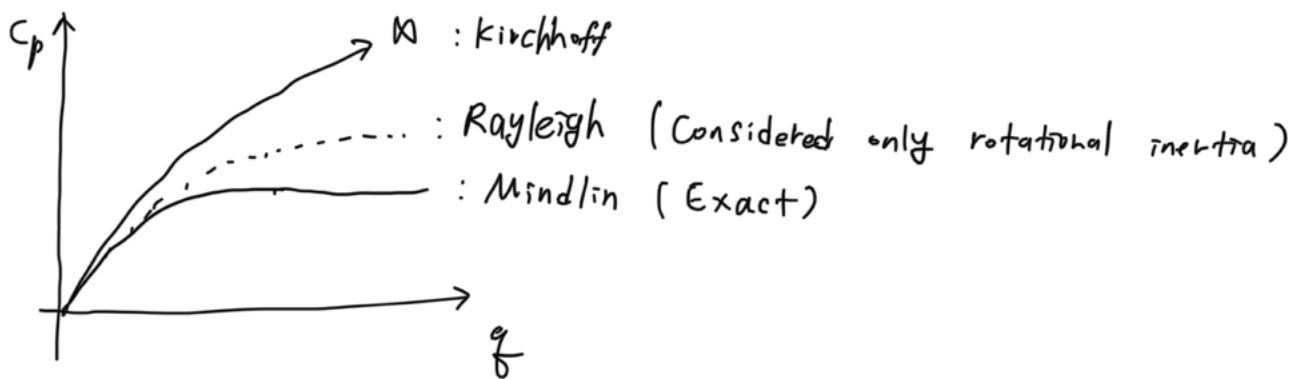 Cp
∞ : Kirchhoff
: Rayleigh (Considered only rotational inertia)
: Mindlin (Exact)
q